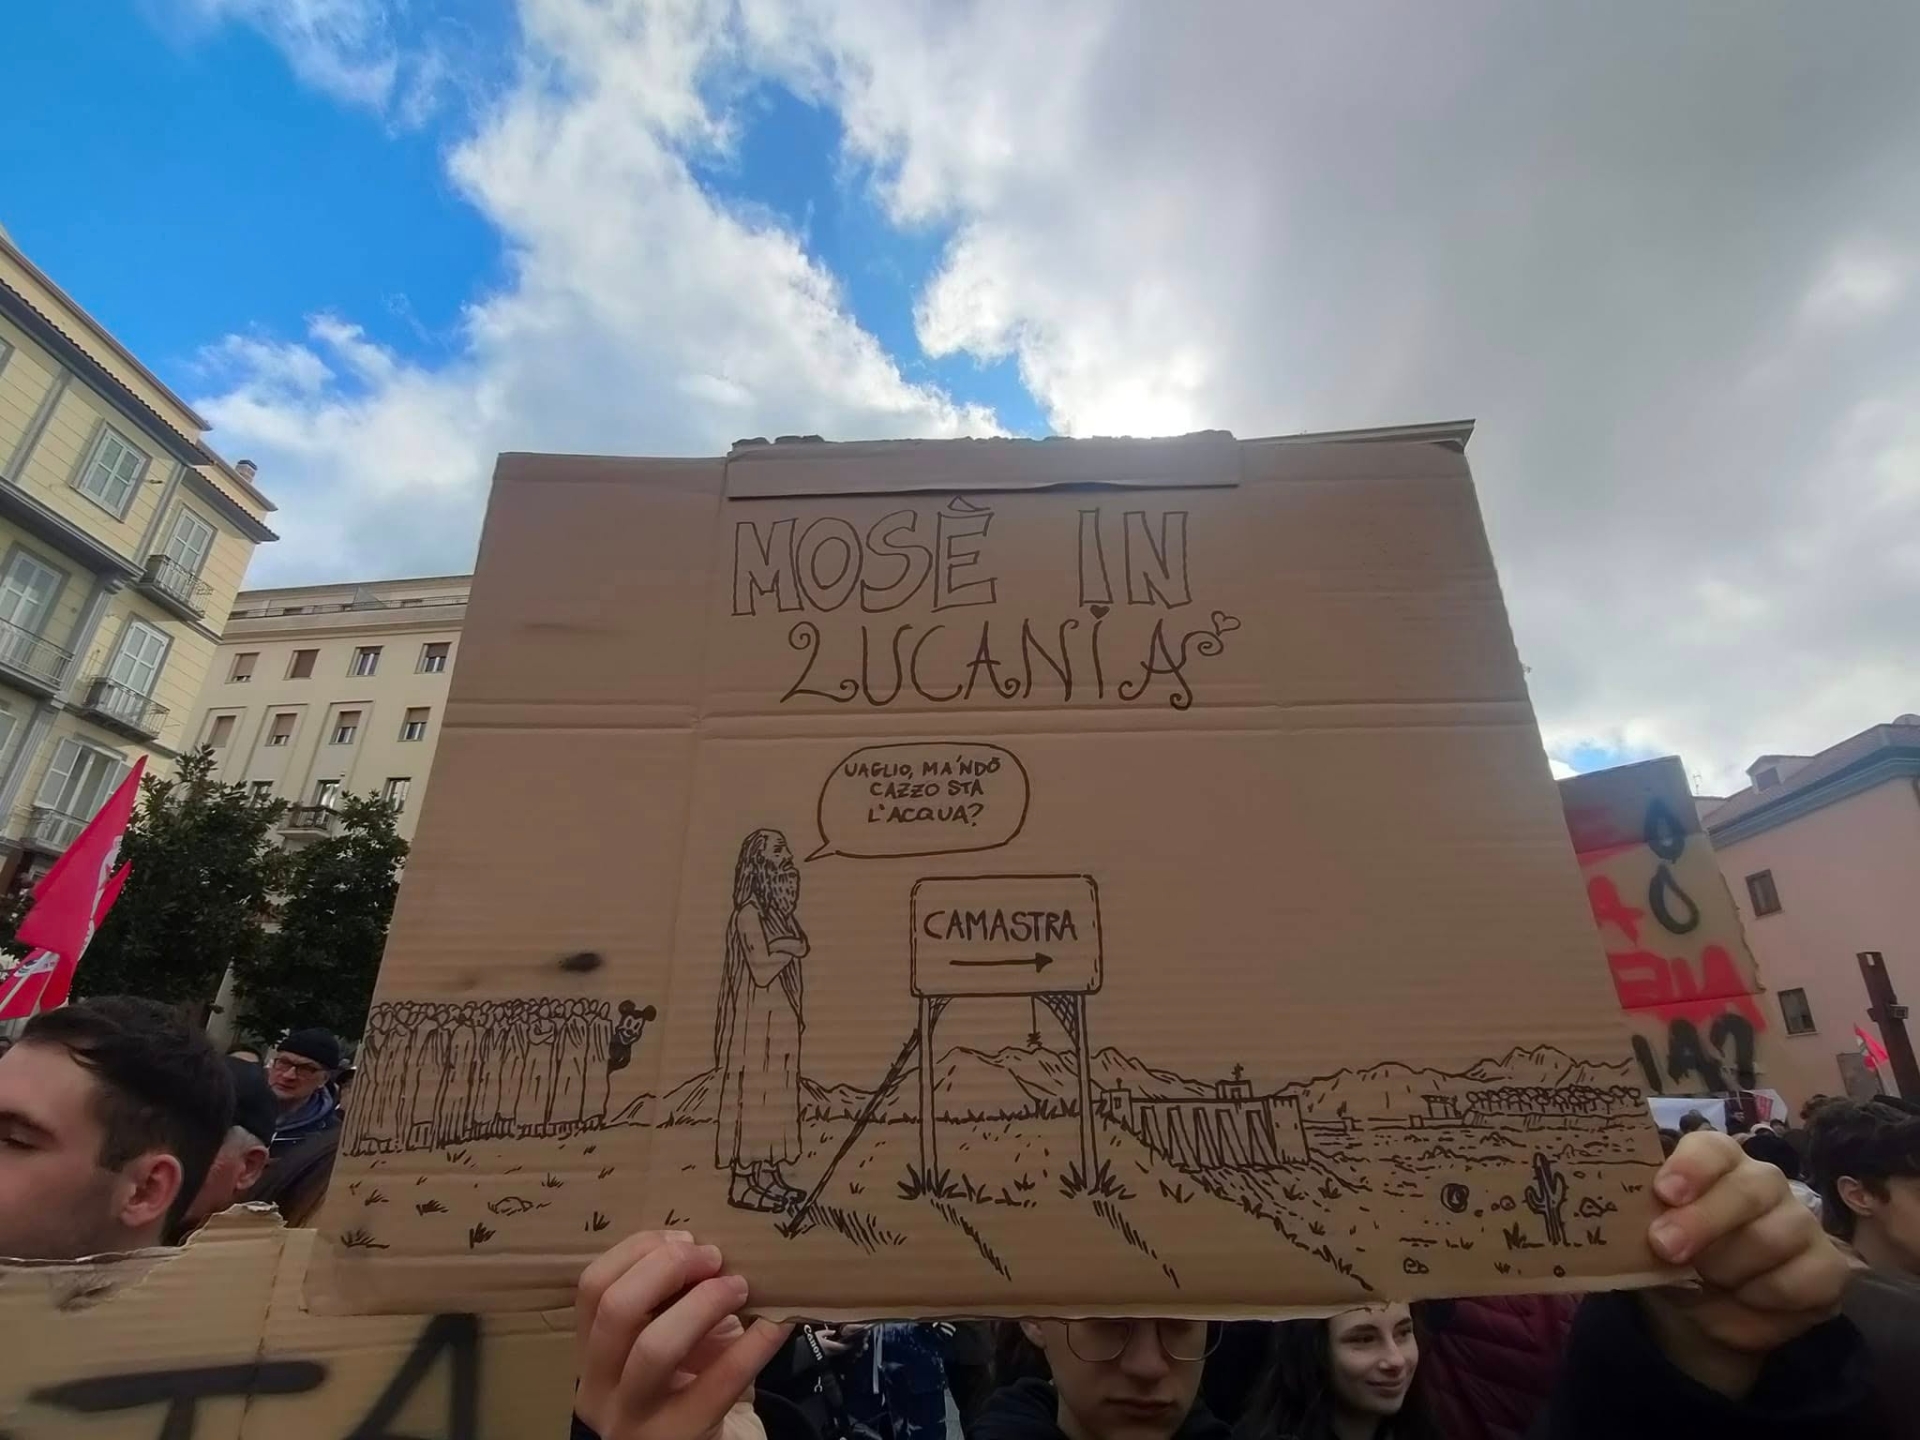 MOSÈ IN
LUCANIA
UAGLIO, MA'NDÓ
CAZZO STA
L'ACQUA?
CAMASTRA
TA
IA?
Canon